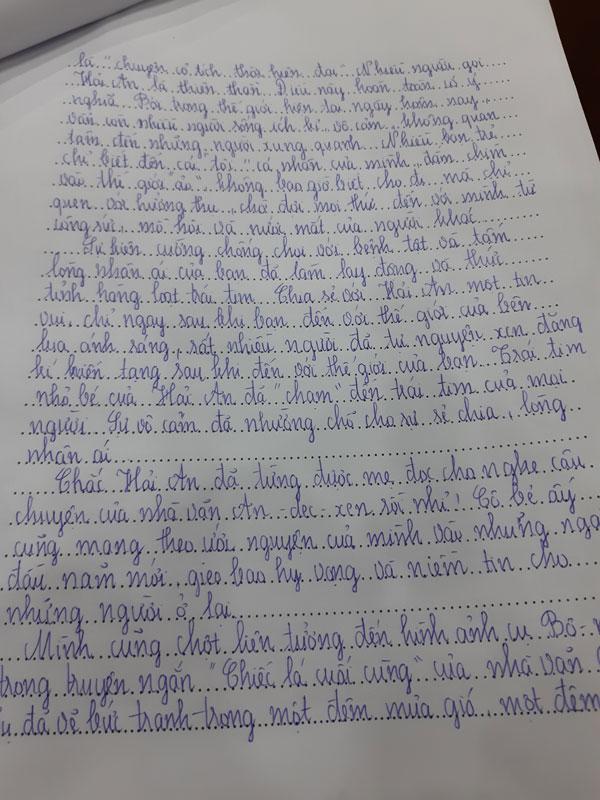 là "chuyện cổ tích thời hiện đại". Nhiều người gọi
Hải An là thiên thần. Điều này hoàn toàn có ý
nghĩa. Bởi trong thế giới hiện tại ngày hôm nay,
vẫn còn nhiều người sống ích kỉ, vô cảm, không quan
tâm đến những người xung quanh. Nhiều bạn trẻ
chỉ biết đến cái "tôi" cá nhân của mình, đắm chìm
vào thế giới "ảo", không bao giờ biết cho đi mà chỉ
quen với hưởng thụ, chờ đợi mọi thứ đến với mình từ
công sức, mồ hôi và nước mắt của người khác.
Sự kiên cường chống chọi với bệnh tật và tấm
lòng nhân ái của bạn đã làm lay động và thức
tỉnh hàng loạt trái tim. Chia sẻ với Hải An một tin
vui, chỉ ngay sau khi bạn đến với thế giới của bên
kia ánh sáng, rất nhiều người đã tự nguyện xin đăng
kí hiến tạng sau khi đến với thế giới của bạn. Trái tim
nhỏ bé của Hải An đã "chạm" đến trái tim của mọi
người. Sự vô cảm đã nhường chỗ cho sự sẻ chia, lòng
nhân ái.
Chắc Hải An đã từng được mẹ đọc cho nghe câu
chuyện của nhà văn An-đec-xen rồi nhỉ! Cô bé ấy
cũng mang theo ước nguyện của mình vào những ngà
đầu năm mới, gieo bao hy vọng và niềm tin cho
những người ở lại.
Mình cũng chợt liên tưởng đến hình ảnh cụ Bơ-
trong truyện ngắn "Chiếc lá cuối cùng" của nhà văn
đã vẽ bức tranh trong một đêm mưa gió, một đêm